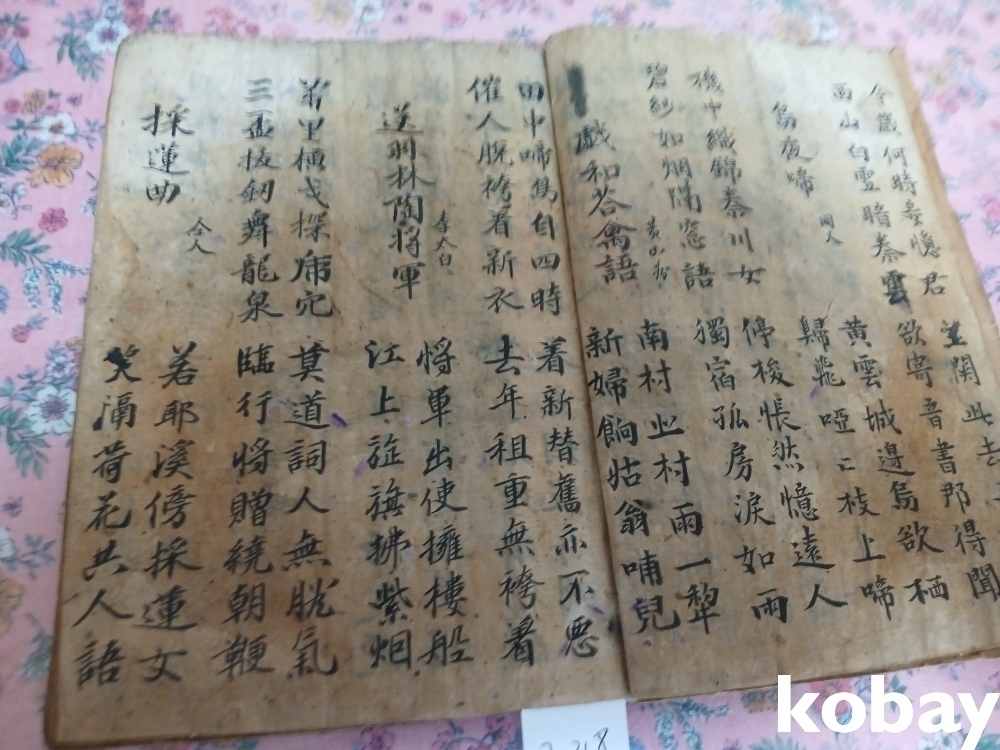 今歲何時妾憶君
西山白雪暗秦雲
關此去
欲寄音書那得聞
烏夜啼 同人
黃雲城邊烏欲栖
歸飛啞〻枝上啼
機中織錦秦川女
碧紗如烟隔窓語
停梭悵然憶遠人
獨宿孤房淚如雨
戱和荅禽語 黃山谷
南村北村雨一犁
新婦餉姑翁哺兒
田中啼鳥自四時
催人脫袴着新衣
着新替舊亦不惡
去年租重無袴着
送羽林陶將軍 李太白
將軍出使擁樓船
江上旌旗拂紫烟
萬里橫戈探虎穴
三盃拔釼舞龍泉
莫道詞人無膽氣
臨行將贈繞朝鞭
採蓮曲 仝人
若耶溪傍採蓮女
笑隔荷花共人語
kobay